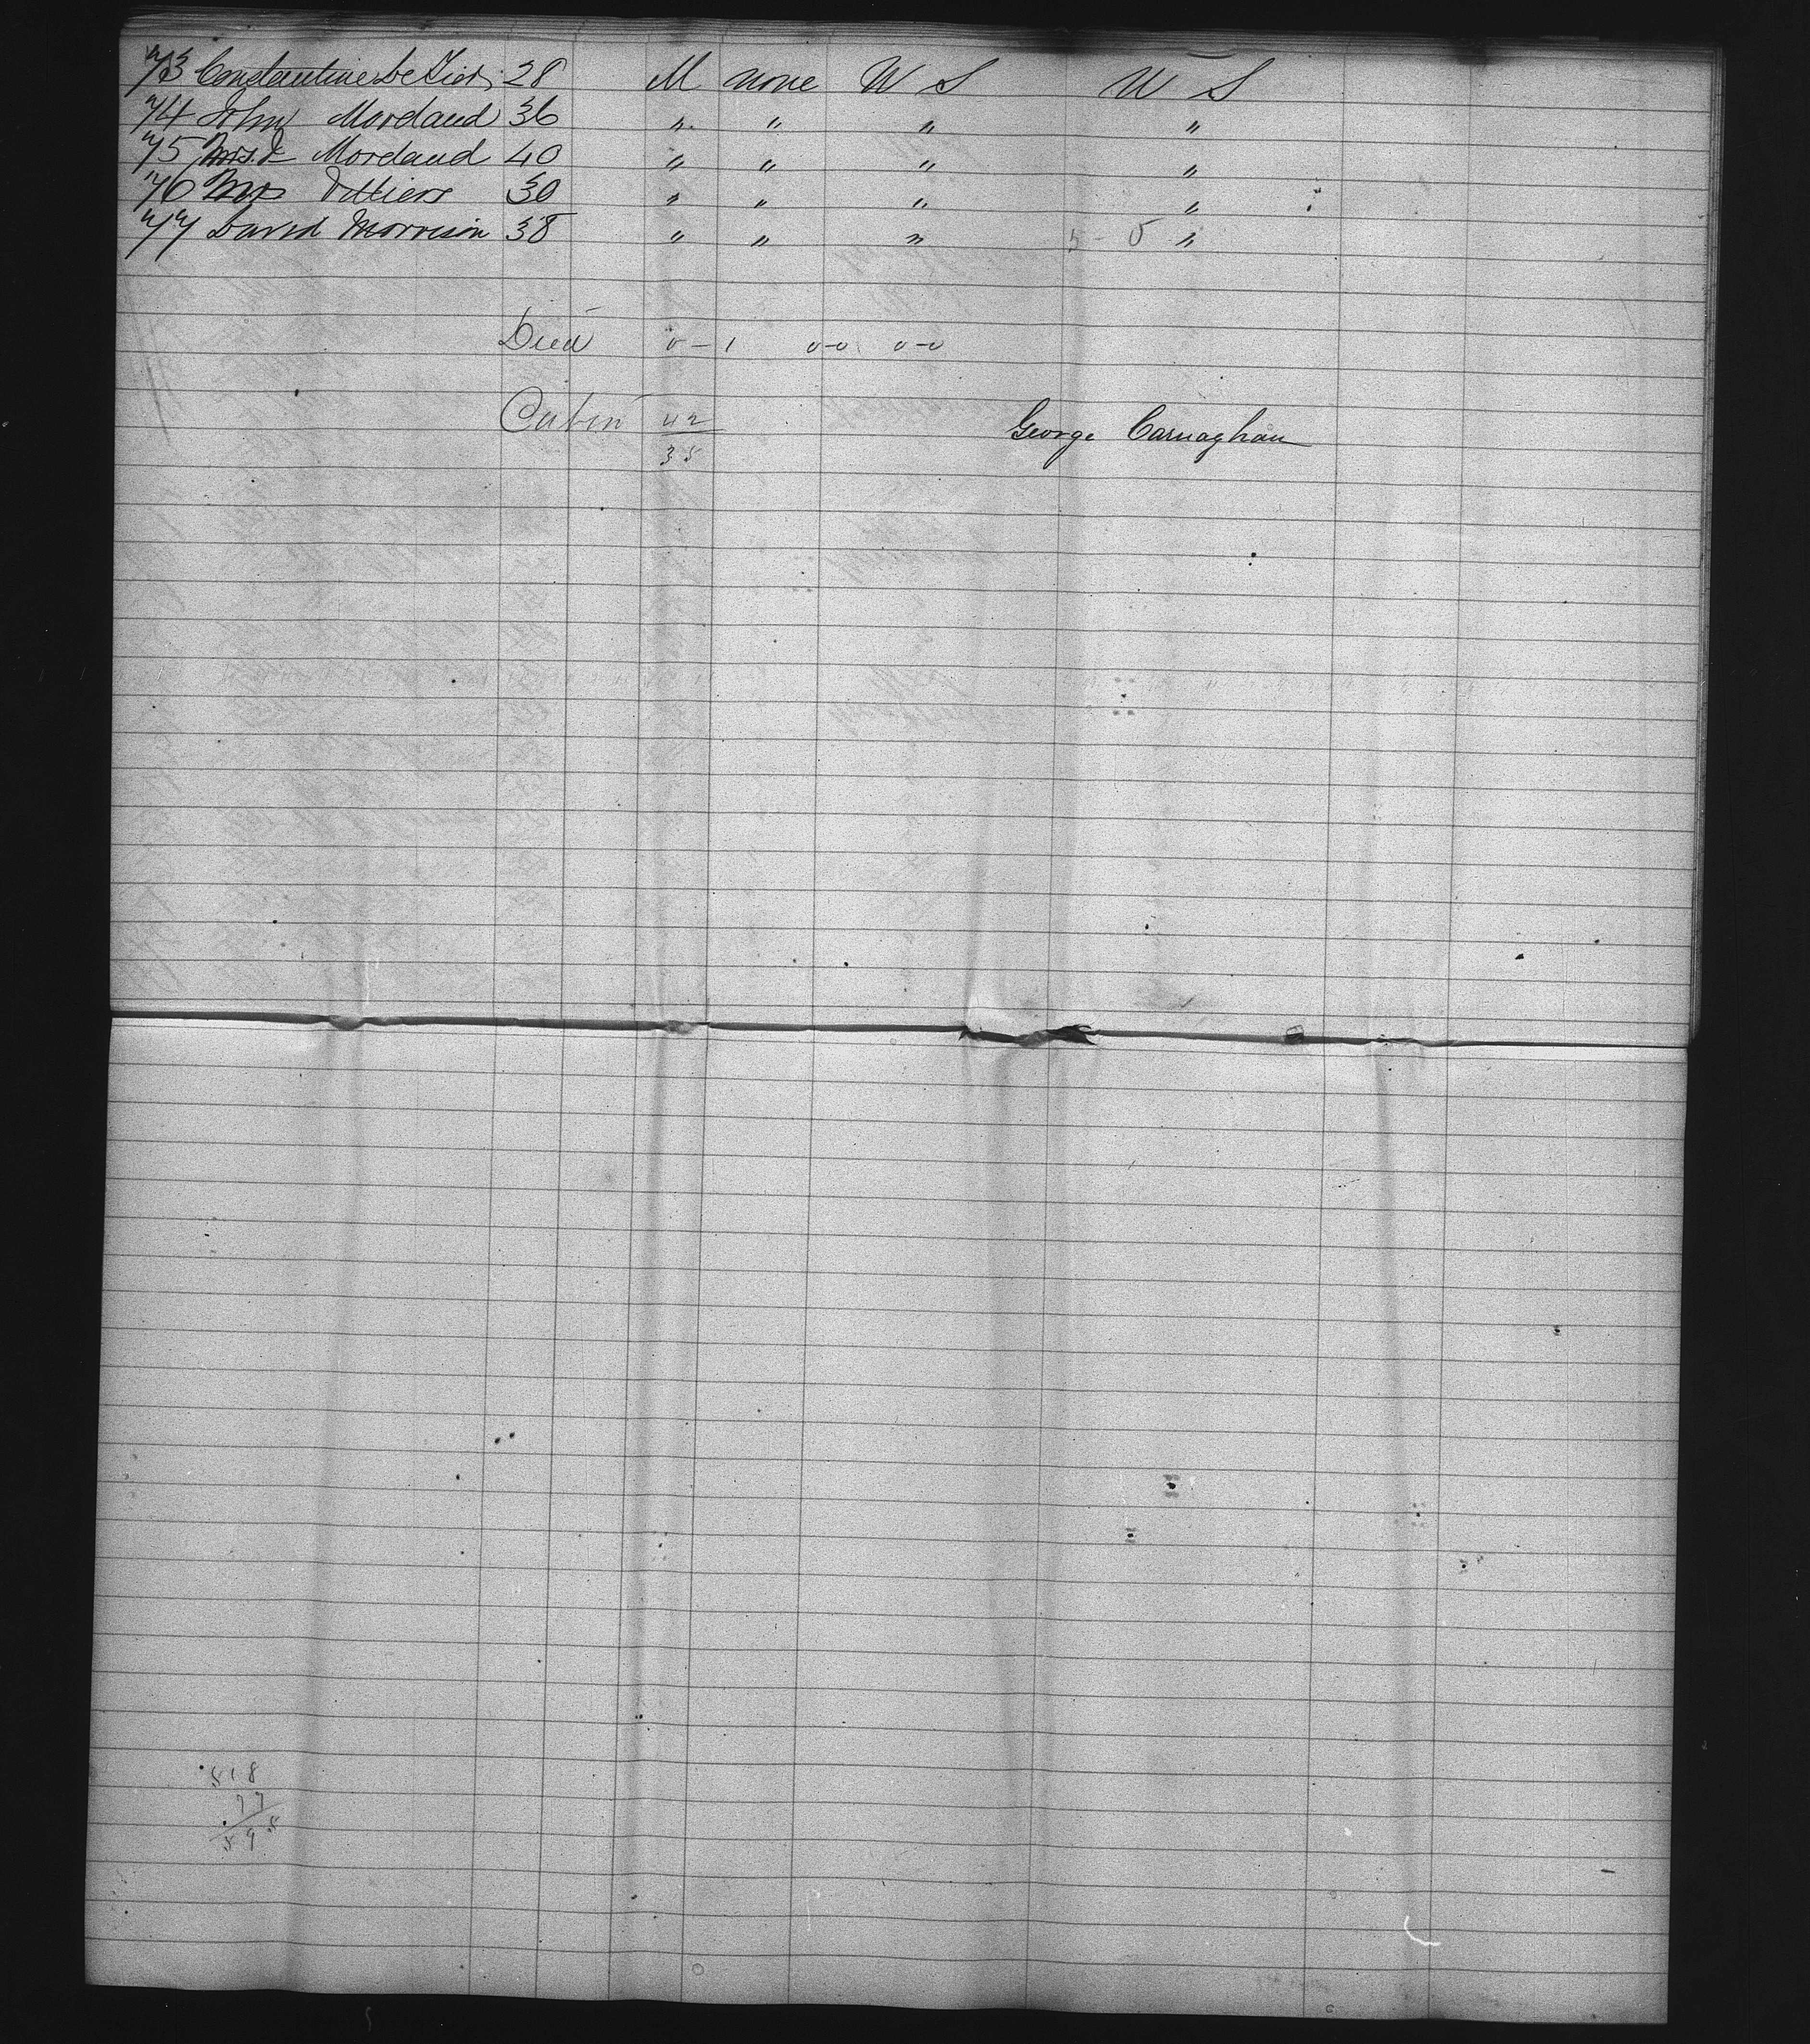 73 Constantine De 28 M none U S U S
74 John Moreland 36 " " " "
75 Mrs. Moreland 40 " " " "
76 Mrs Villiers 30 " " " "
77 David Morrison 38 " " " 5-0 "
Died 0-1 0-0 0-0
Cabin 42
35
George Carnaghan
518
77
595